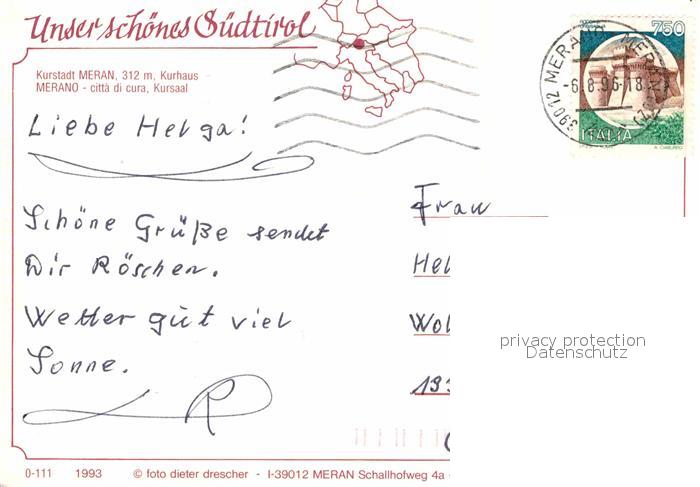 Unser schönes Südtirol
Kurstadt MERAN, 312 m, Kurhaus
MERANO - città di cura, Kursaal
750
ITALIA
39012 MERANO
-6.8.96-18
Liebe Helga!
Schöne Grüße sendet
Dir Röschen.
Wetter gut viel
Sonne.
R
Frau
Hel
Wol
193
privacy protection
Datenschutz
0-111 1993 © foto dieter drescher - I-39012 MERAN Schallhofweg 4a -